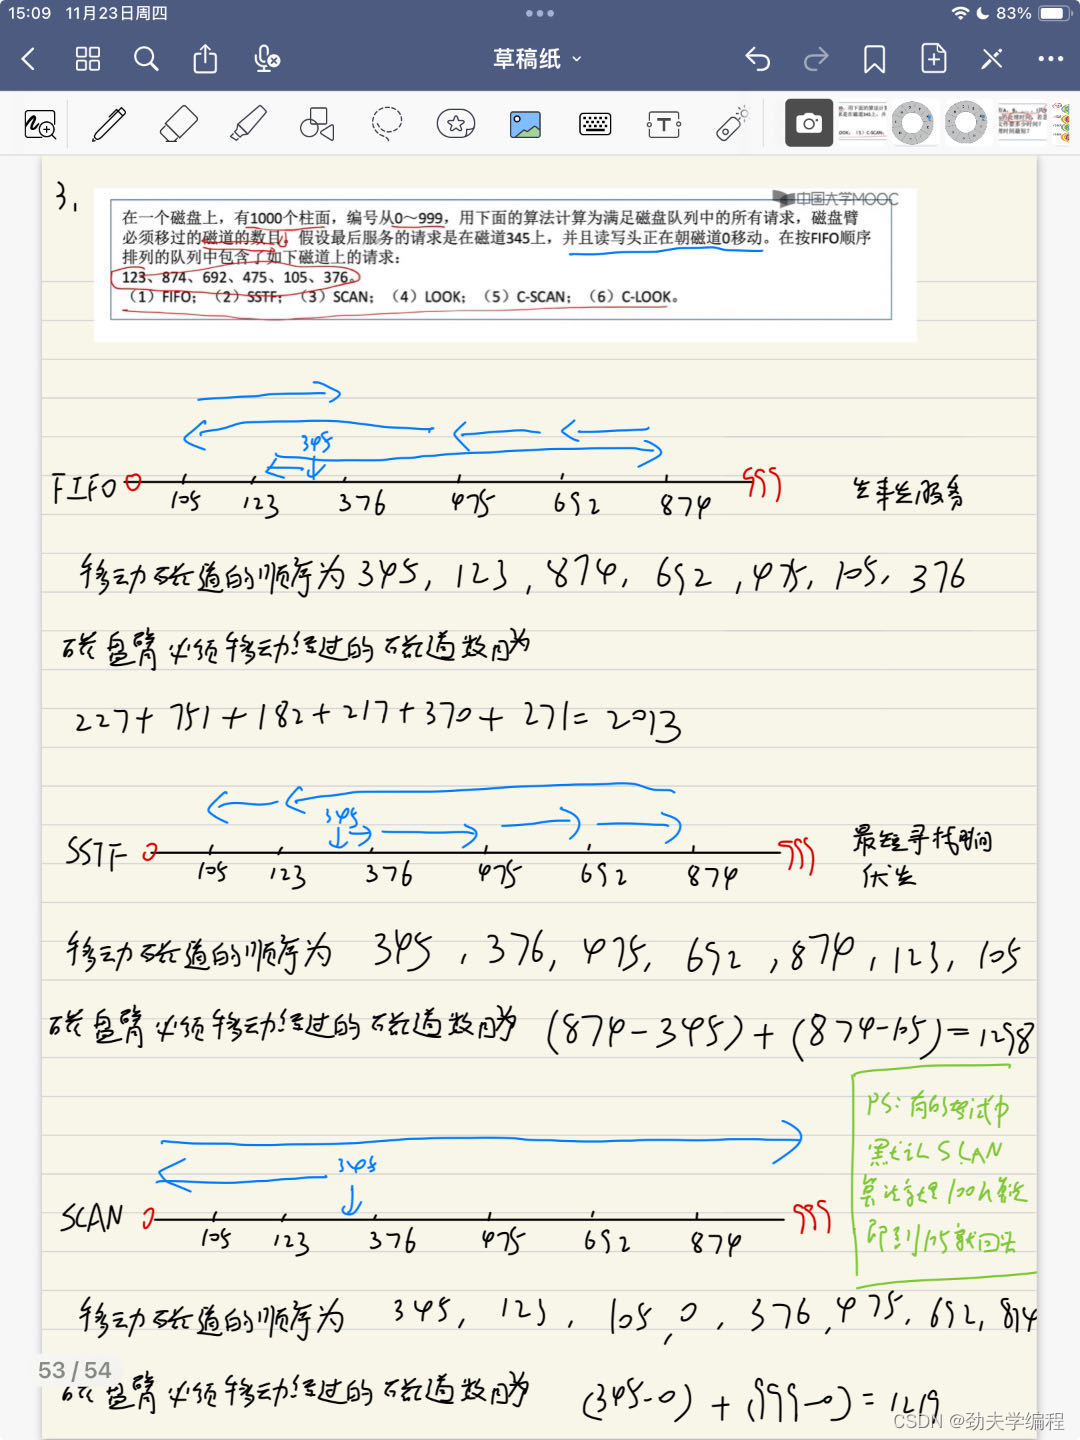 15:09 11月23日周四
83%
草稿纸
3.
中国大学MOOC
在一个磁盘上，有1000个柱面，编号从0～999，用下面的算法计算为满足磁盘队列中的所有请求，磁盘臂
必须移过的磁道的数目。假设最后服务的请求是在磁道345上，并且读写头正在朝磁道0移动。在按FIFO顺序
排列的队列中包含了如下磁道上的请求：
123、874、692、475、105、376。
（1）FIFO；（2）SSTF；（3）SCAN；（4）LOOK；（5）C-SCAN；（6）C-LOOK。
345
FIFO 0 999 先来先服务
105 123 376 475 692 874
移动磁道的顺序为 345, 123, 874, 692, 475, 105, 376
磁盘臂必须移动经过的磁道数目为
227+751+182+217+370+271=2013
345
SSTF 0 999 最短寻找时间
优先
105 123 376 475 692 874
移动磁道的顺序为 345, 376, 475, 692, 874, 123, 105
磁盘臂必须移动经过的磁道数目为 (874-345)+(874-105)=1298
PS: 有的考试中
默认SCAN
算法就是look算法
即到105就回头
345
SCAN 0 999
105 123 376 475 692 874
移动磁道的顺序为 345, 123, 105, 0, 376, 475, 692, 874
53 / 54
磁盘臂必须移动经过的磁道数目为 (345-0)+(999-0)=1219
CSDN @劲夫学编程